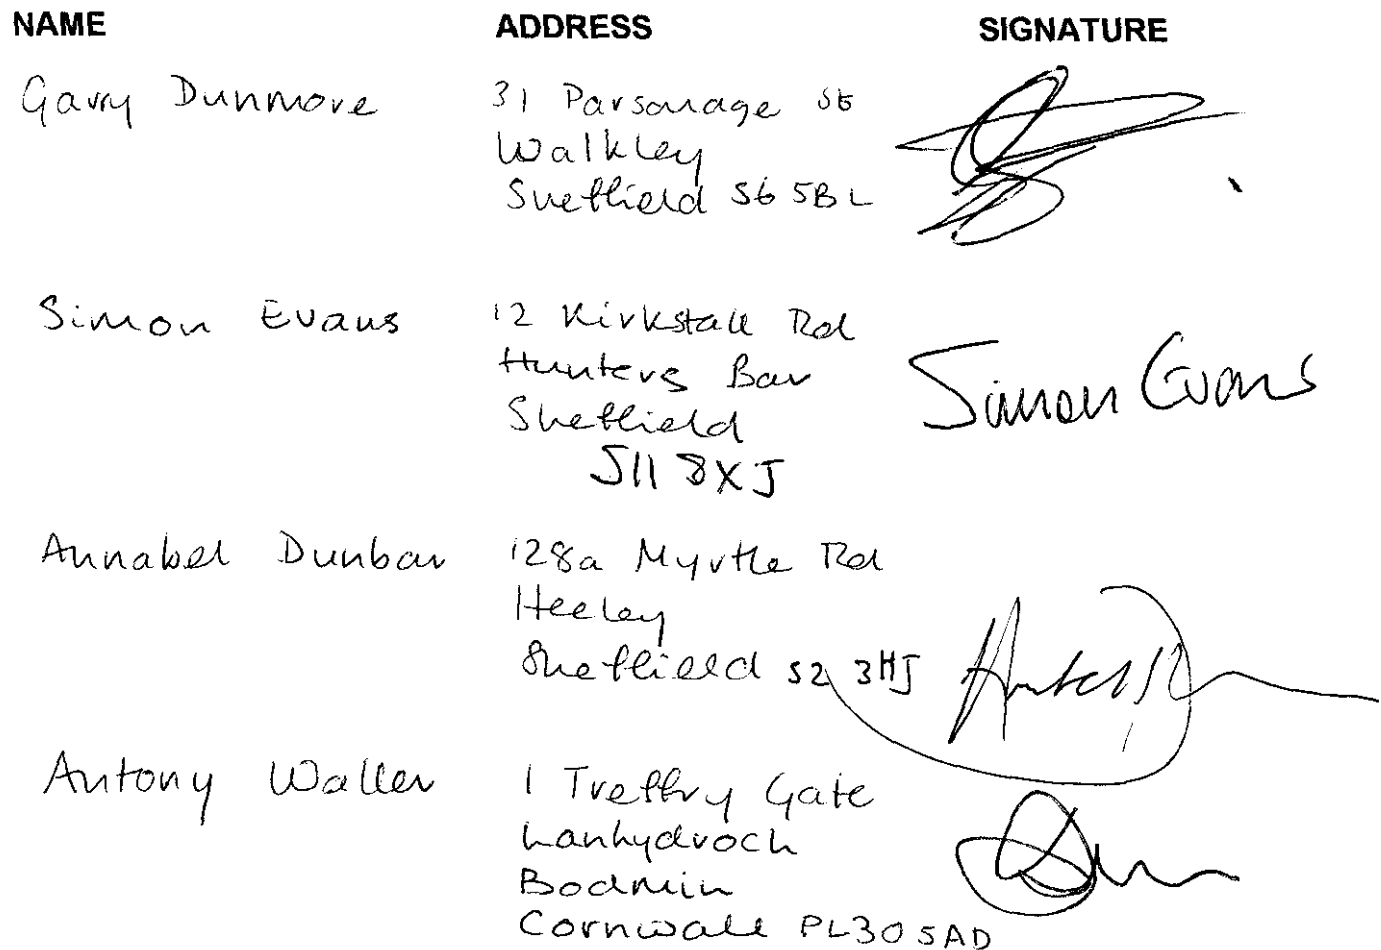 NAME ADDRESS SIGNATURE
Garry Dunmore 31 Parsonage St
Walkley
Sheffield S6 5BL
Simon Evans 12 Kirkstall Rd
Hunters Bar
Sheffield Simon Evans
S11 8XJ
Annabel Dunbar 128a Myrtle Rd
Heeley
Sheffield S2 3HJ
Antony Waller 1 Treffry Gate
Lanhydroch
Bodmin
Cornwall PL30 5AD